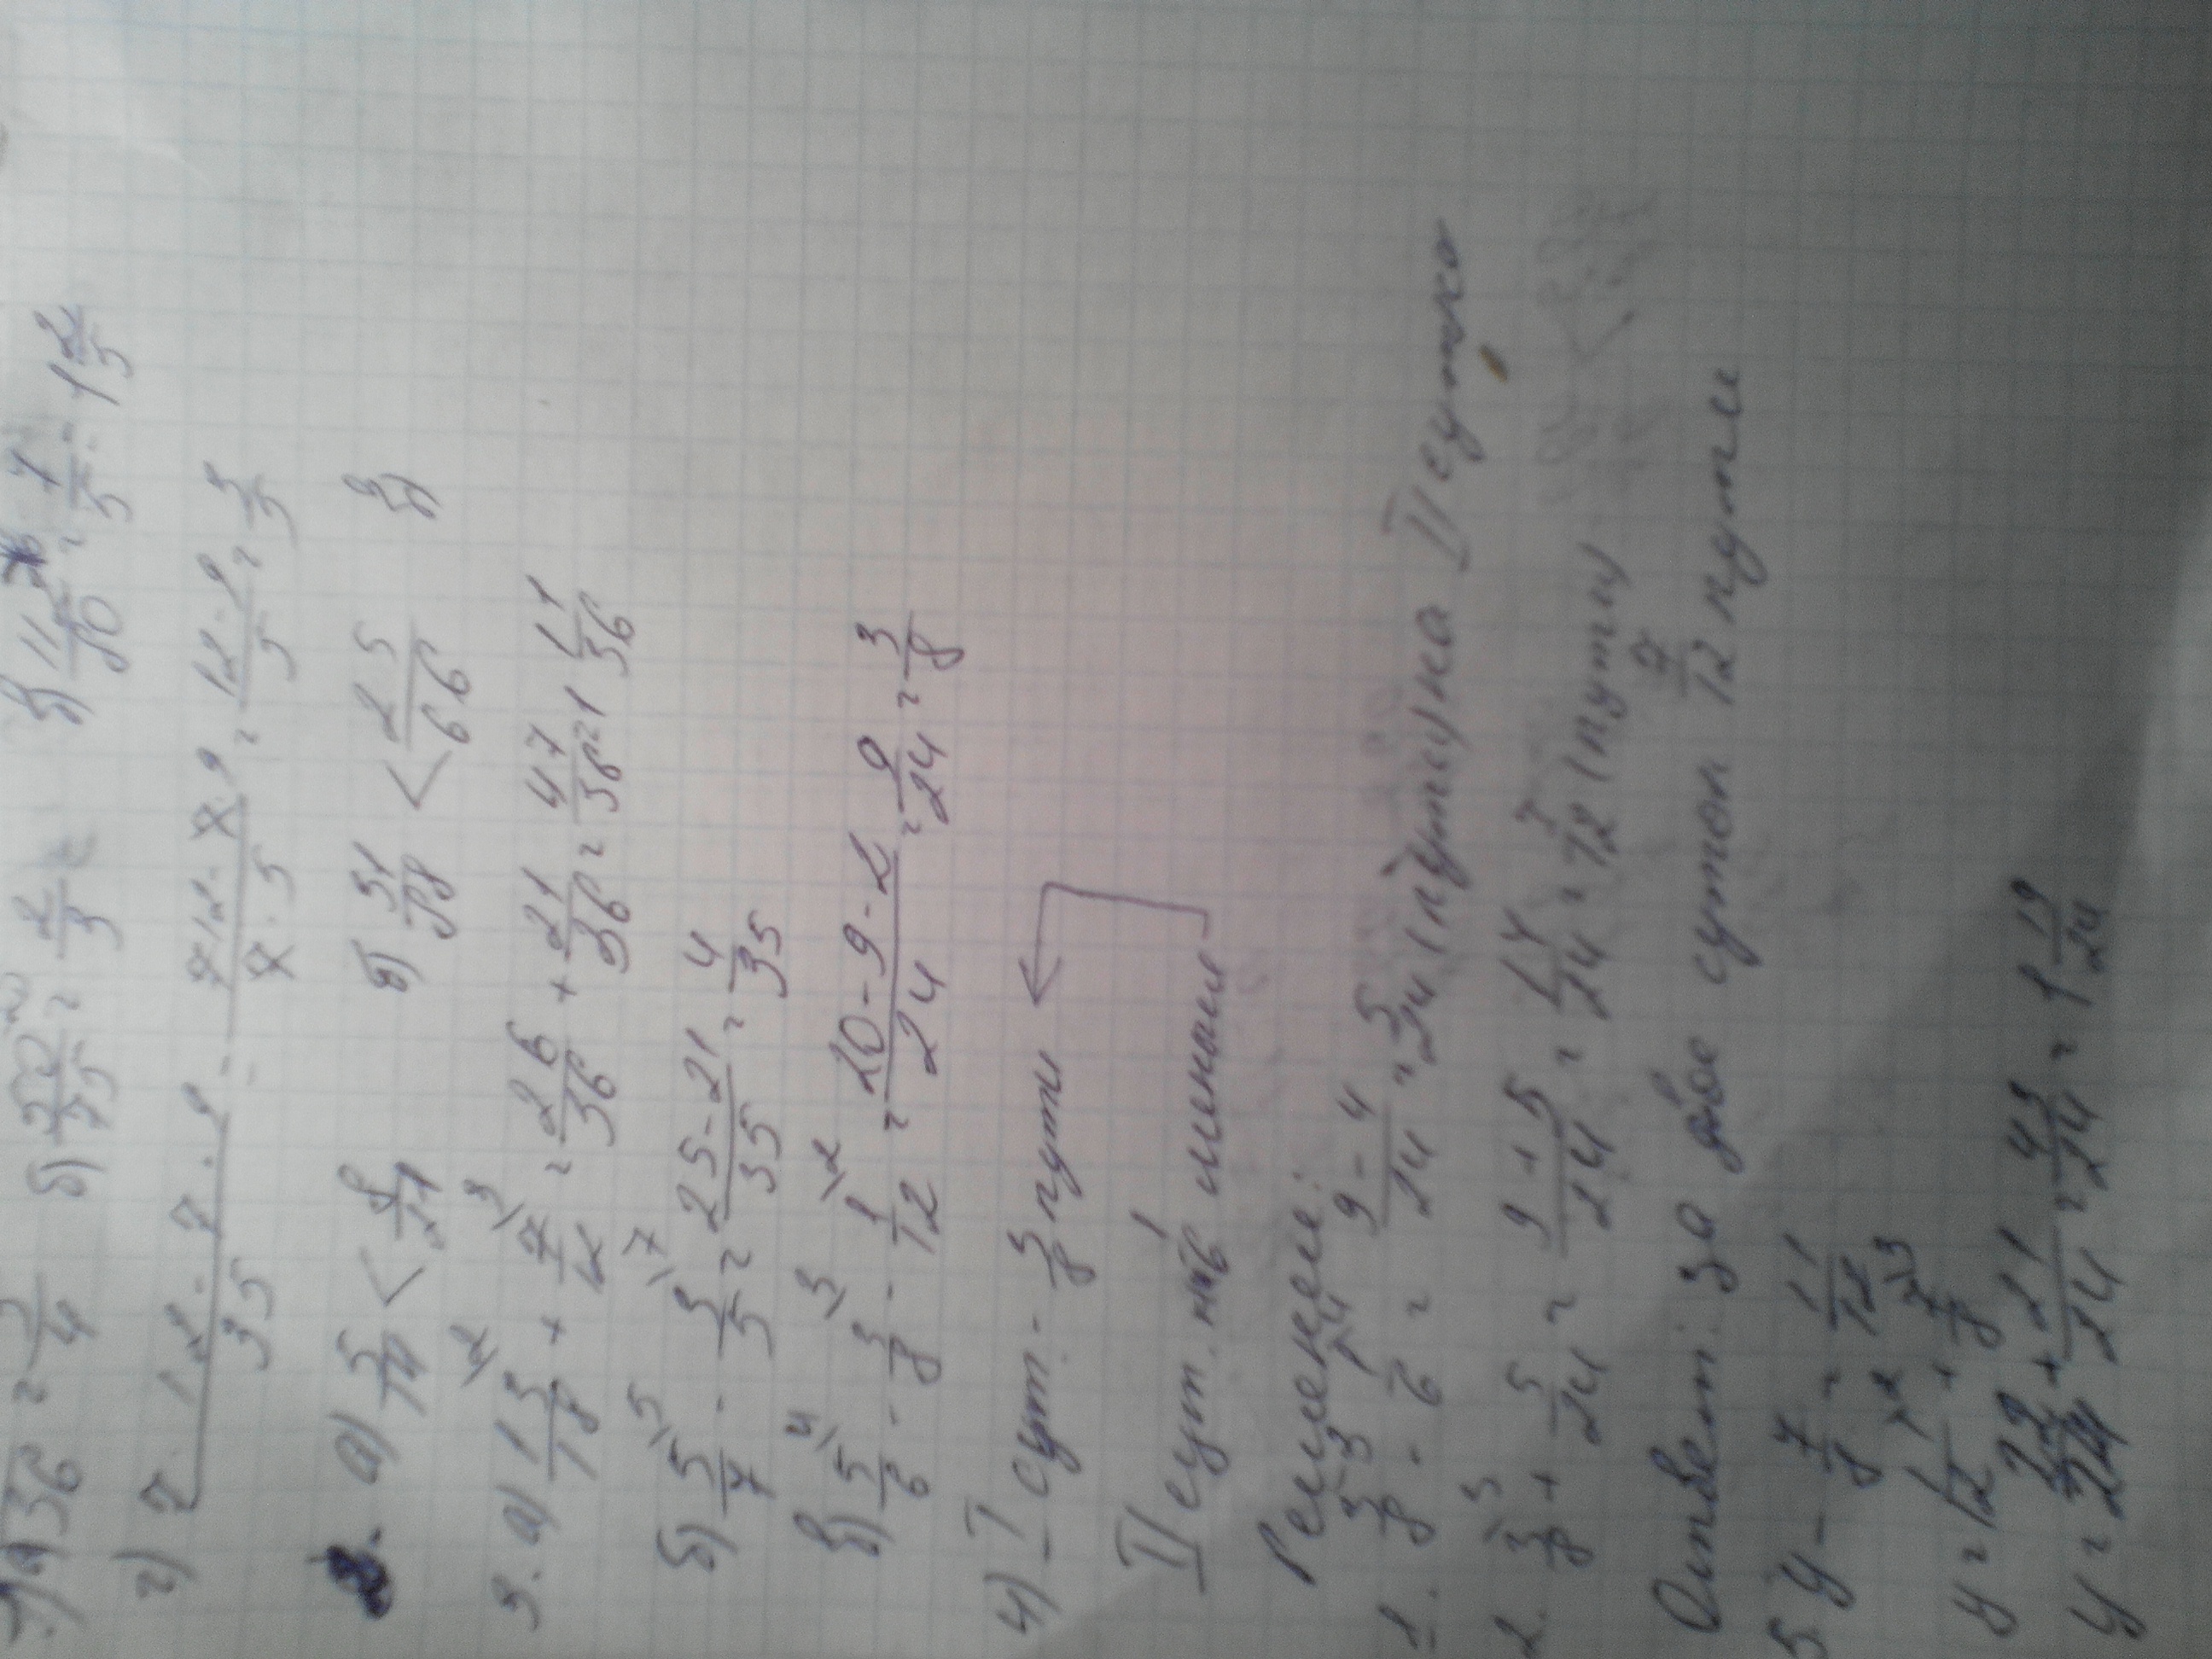 36 = 3/4 б) = 2/3 = 7/5 = 1 2/5
г) 7·12-7·9 / 35 = 7·(12-9) / 7·5 = 12-9 / 5 = 3/5
2. а) 5/14 < 8/21 б) < 25/66 в)
3. а) 13/18 \2 + 7/12 \3 = 26/36 + 21/36 = 47/36 = 1 11/36
б) 5/7 \5 - 3/5 \7 = 25-21 / 35 = 4/35
в) 5/6 \4 - 3/8 \3 - 1/12 \2 = 20-9-2 / 24 = 9/24 = 3/8
4) I сут. - 3/8 пути
II сут. на 1/6 меньше
Решение:
1. 3/8 \3 - 1/6 \4 = 9-4 / 24 = 5/24 (пути) на II сутки
2. 3/8 \3 + 5/24 = 9+5 / 24 = 14/24 = 7/12 (пути)
Ответ: за двое суток 7/12 пути
5. y - 7/8 = 11/12
y = 11/12 \2 + 7/8 \3
y = 22/24 + 21/24 = 43/24 = 1 19/24